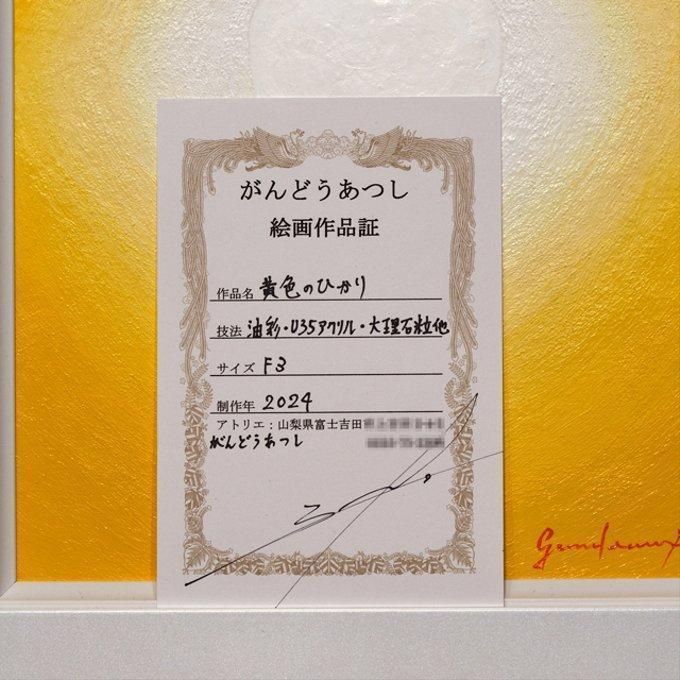 がんどうあつし
絵画作品証
作品名 黄色のひかり
技法 油彩・U35アクリル・大理石粒他
サイズ F3
制作年 2024
アトリエ：山梨県富士吉田
がんどうあつし